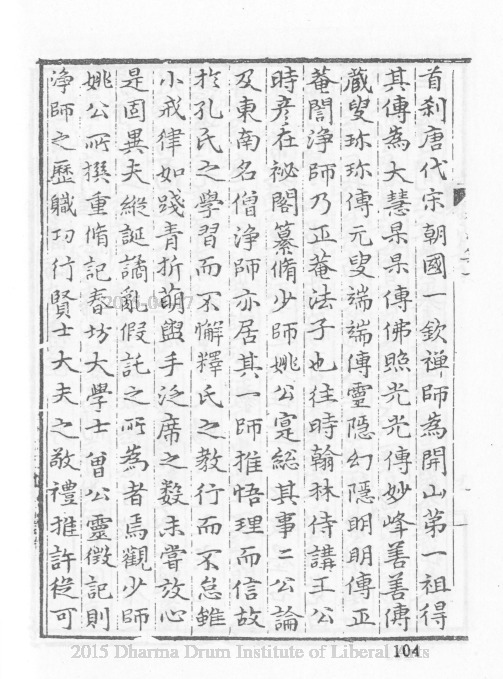 首刹唐代宋朝國一欽禅師為開山第一祖得
其傳為大慧杲杲傳佛照光光傳妙峰善善傳
藏叟珎珎傳元叟端端傳靈隱幻隱明明傳正
菴誾淨師乃正菴法子也往時翰林侍講王公
時彦在祕閣纂脩少師姚公寔総其事二公論
及東南名僧淨師亦居其一師推悟理而信故
扵孔氏之學習而不懈釋氏之教行而不怠雖
小戒律如踐青折萌盥手泛席之数未嘗放心
是固異夫縱誕譎亂假託之所為者焉觀少師
姚公所撰重脩記春坊大學士曽公靈徴記則
淨師之歷職功行賢士大夫之敬禮推許從可
104
2015 Dharma Drum Institute of Liberal Arts